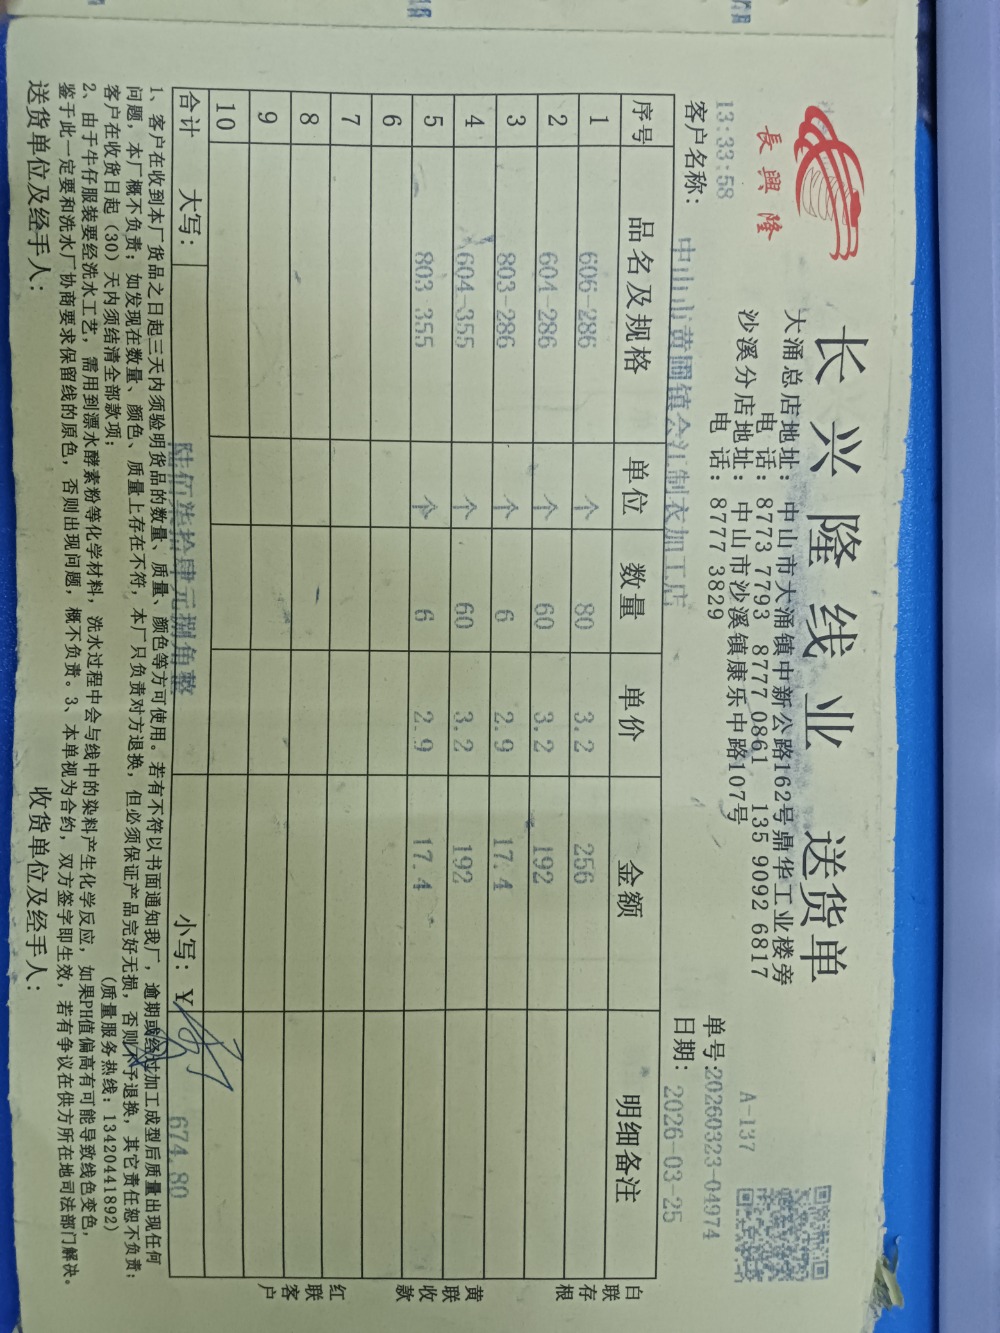 長興隆
长兴隆线业 送货单
A-137
大涌总店地址：中山市大涌镇中新公路162号鼎华工业楼旁
电 话：8773 7793 8777 0861 135 9092 6817
沙溪分店地址：中山市沙溪镇康乐中路107号
电 话：8777 3829
单号:20260323-04974
13:33:58
客户名称：中山市黄圃镇合江制衣加工店
日期：2026-03-25
序号 品名及规格 单位 数量 单价 金额 明细备注
1 606-286 个 80 3.2 256
2 604-286 个 60 3.2 192
3 803-286 个 6 2.9 17.4
4 604-355 个 60 3.2 192
5 803-355 个 6 2.9 17.4
6
7
8
9
10
合计 大写：陆佰柒拾肆元捌角整 小写：￥ 674.80
白联存根
黄联收款
红联客户
1、客户在收到本厂货品之日起三天内须验明货品的数量、质量、颜色等方可使用。若有不符以书面通知我厂，逾期或经过加工成型后质量出现任何
问题，本厂概不负责；如发现在数量、颜色、质量上存在不符，本厂只负责对方退换，但必须保证产品完好无损，否则不予退换，其它责任恕不负责；
客户在收货日起（30）天内须结清全部款项； （质量服务热线：13420441892）
2、由于牛仔服装要经洗水工艺，需用到漂水酵素粉等化学材料，洗水过程中会与线中的染料产生化学反应，如果PH值偏高有可能导致线色变色，
鉴于此一定要和洗水厂协商要求保留线的原色，否则出现问题，概不负责。3、本单视为合约，双方签字即生效，若有争议在供方所在地司法部门解决。
送货单位及经手人： 收货单位及经手人：